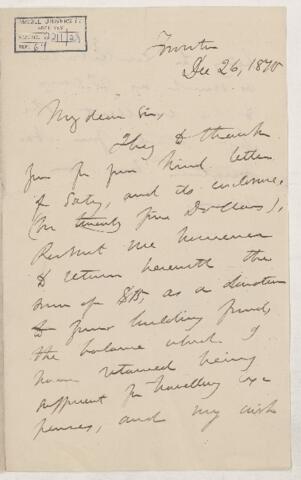 McGILL UNIVERSITY
ACC. NO.
REF. 64
Toronto
Dec 26, 1870
My dear Sir,
I beg to thank
you for your kind letter
of Saty, and its enclosure,
(for twenty five Dollars),
Permit me however
to return herewith the
sum of $15, as a donation
to your building fund,
the balance which I
have retained being
sufficient for travelling ex-
penses, and my wish